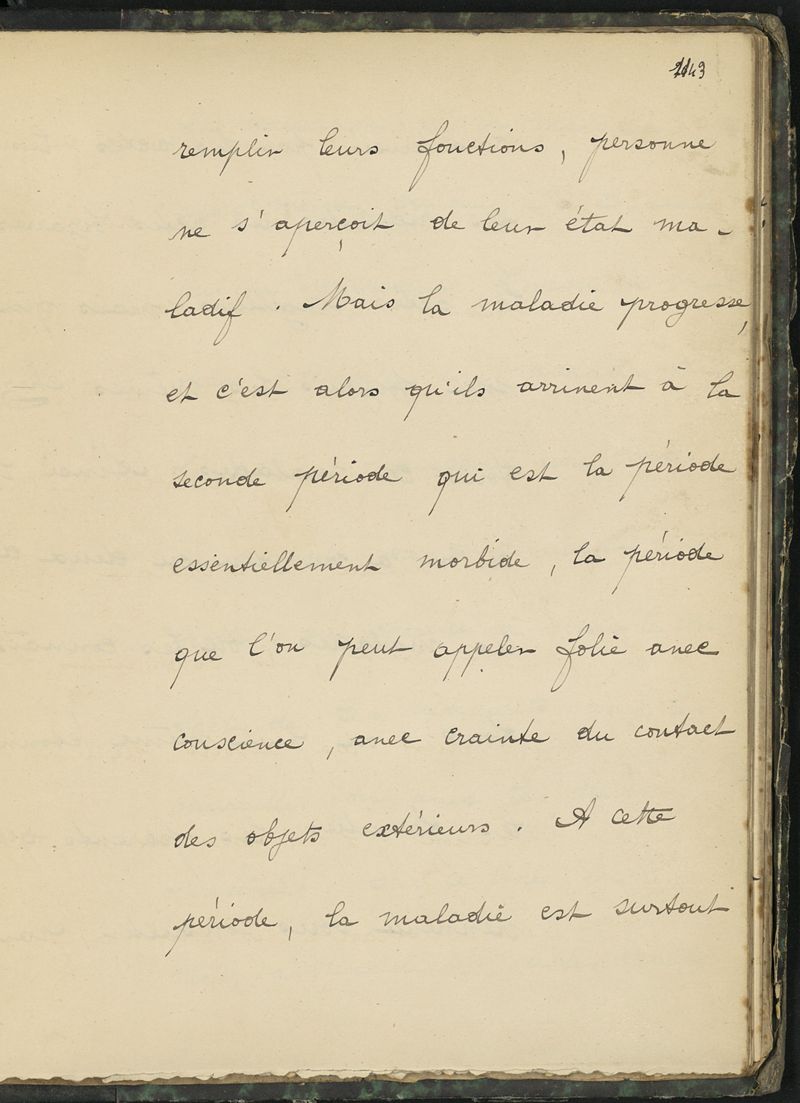 remplir leurs fonctions, personne
ne s'aperçoit de leur état ma-
ladif. Mais la maladie progresse,
et c'est alors qu'ils arrivent à la
seconde période qui est la période
essentiellement morbide, la période
que l'on peut appeler folie avec
conscience, avec crainte du contact
des objets extérieurs. A cette
période, la maladie est surtout